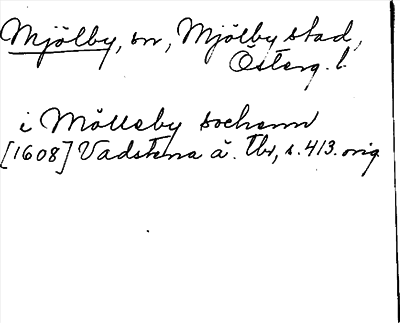 Mjölby, sn, Mjölby stad,
Österg. l.
i Mölleby sochenn
[1608] Vadstena ä. tbr, s. 413. orig.